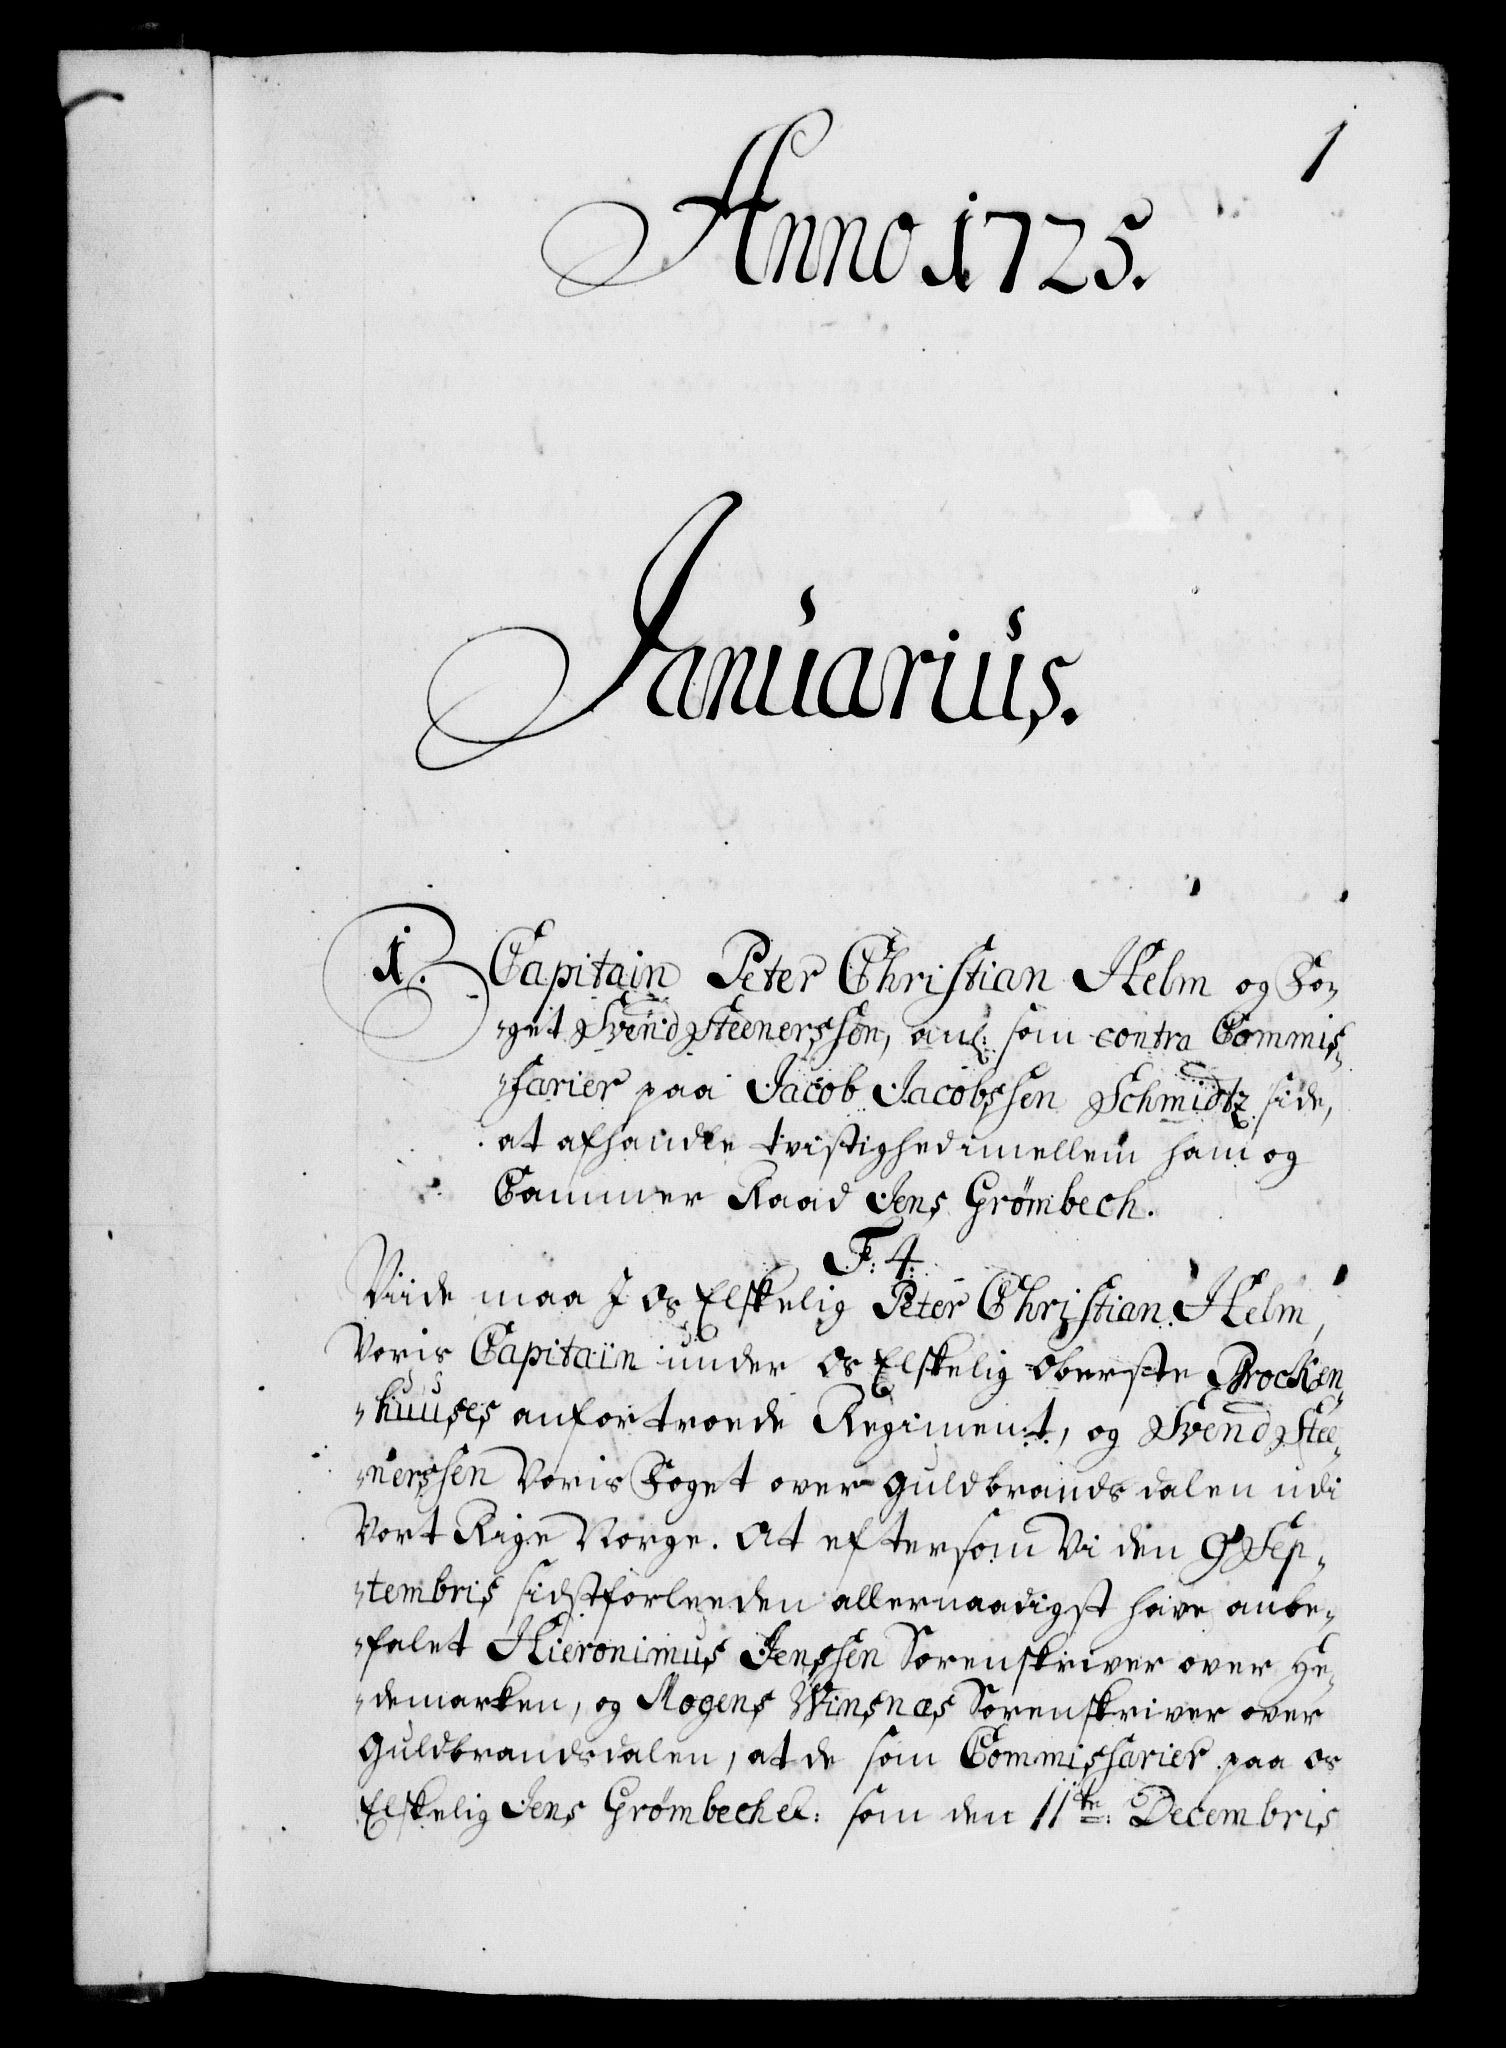 1
Anno 1725.
Januarius.
1. Capitain Peter Christian Helm og Fo„
„get Svend Steenerssøn, anl: som contra Commis„
„sarier paa Jacob Jacobssen Schmidtz side,
at afhandle tvistighed imellem ham og
Cammer Raad Jens Grømbech.
F: 4.
Viide maa I Os Elskelig Peter Christian Helm,
Voris Capitain under Os Elskelig Oberste Brocken„
„huuses anfortroede Regiment, og Svend Stee„
„nerssen Voris Foget over Guldbrandsdalen udi
Vort Rige Norge. At eftersom Vi den 9 Sep„
„tembris sidstforleeden allernaadigst have anbe„
„falet Hieronimus Jenssen Sorenskriver over He„
„demarken, og Mogens Winsnæs Sorenskriver over
Guldbrandsdalen, at de som Commissarier paa Os
Elskelig Jens Grømbech &c: som den 11te: Decembris